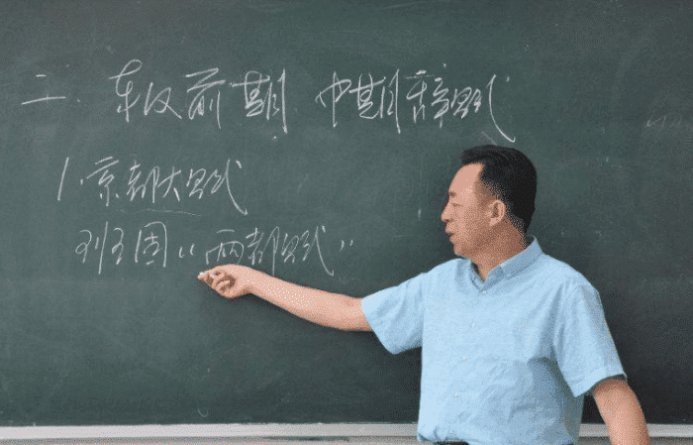 二、东汉前期、中期辞赋
1、京都大赋
班固“两都赋”